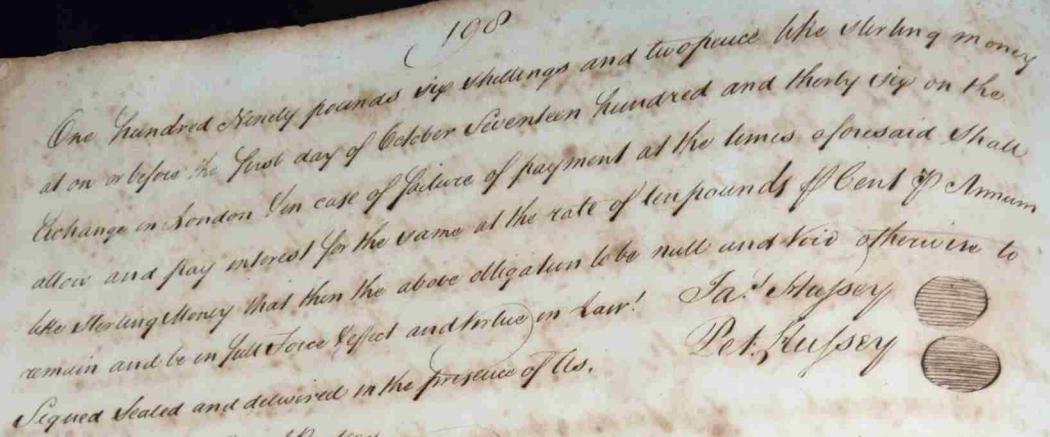 198
One hundred Ninety pounds six shillings and twopence like sterling money
at on or before the first day of October Seventeen hundred and therty six on the
Exchange in London & in case of failure of payment at the times aforesaid Shall
allow and pay interest for the same at the rate of ten pounds ⅌ Cent ⅌ Annum
like Sterling Money that then the above obligation to be null and Void otherwise to
remain and be in full Force Effect and Virtue in Law!
Jas. Hussey
Pet. Hussey
Signed Sealed and delivered in the presence of Us.